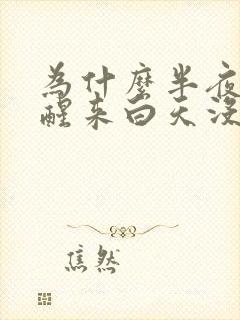 為什麼半夜
醒來白天沒
焦然